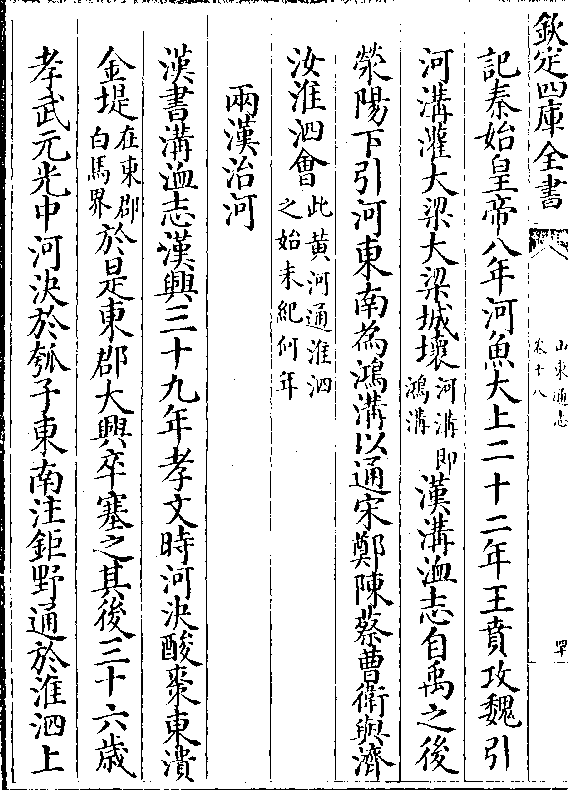 欽定四庫全書
山東通志
卷十八
記秦始皇帝八年河魚大上二十二年王賁攻魏引
河溝灌大梁大梁城壞河溝即鴻溝漢溝洫志自禹之後
滎陽下引河東南為鴻溝以通宋鄭陳蔡曹衛與濟
汝淮泗會此黄河通淮泗之始未紀何年
兩漢治河
漢書溝洫志漢興三十九年孝文時河決酸棗東潰
金堤在東郡白馬界於是東郡大興卒塞之其後三十六歳
孝武元光中河決於瓠子東南注鉅野通於淮泗上